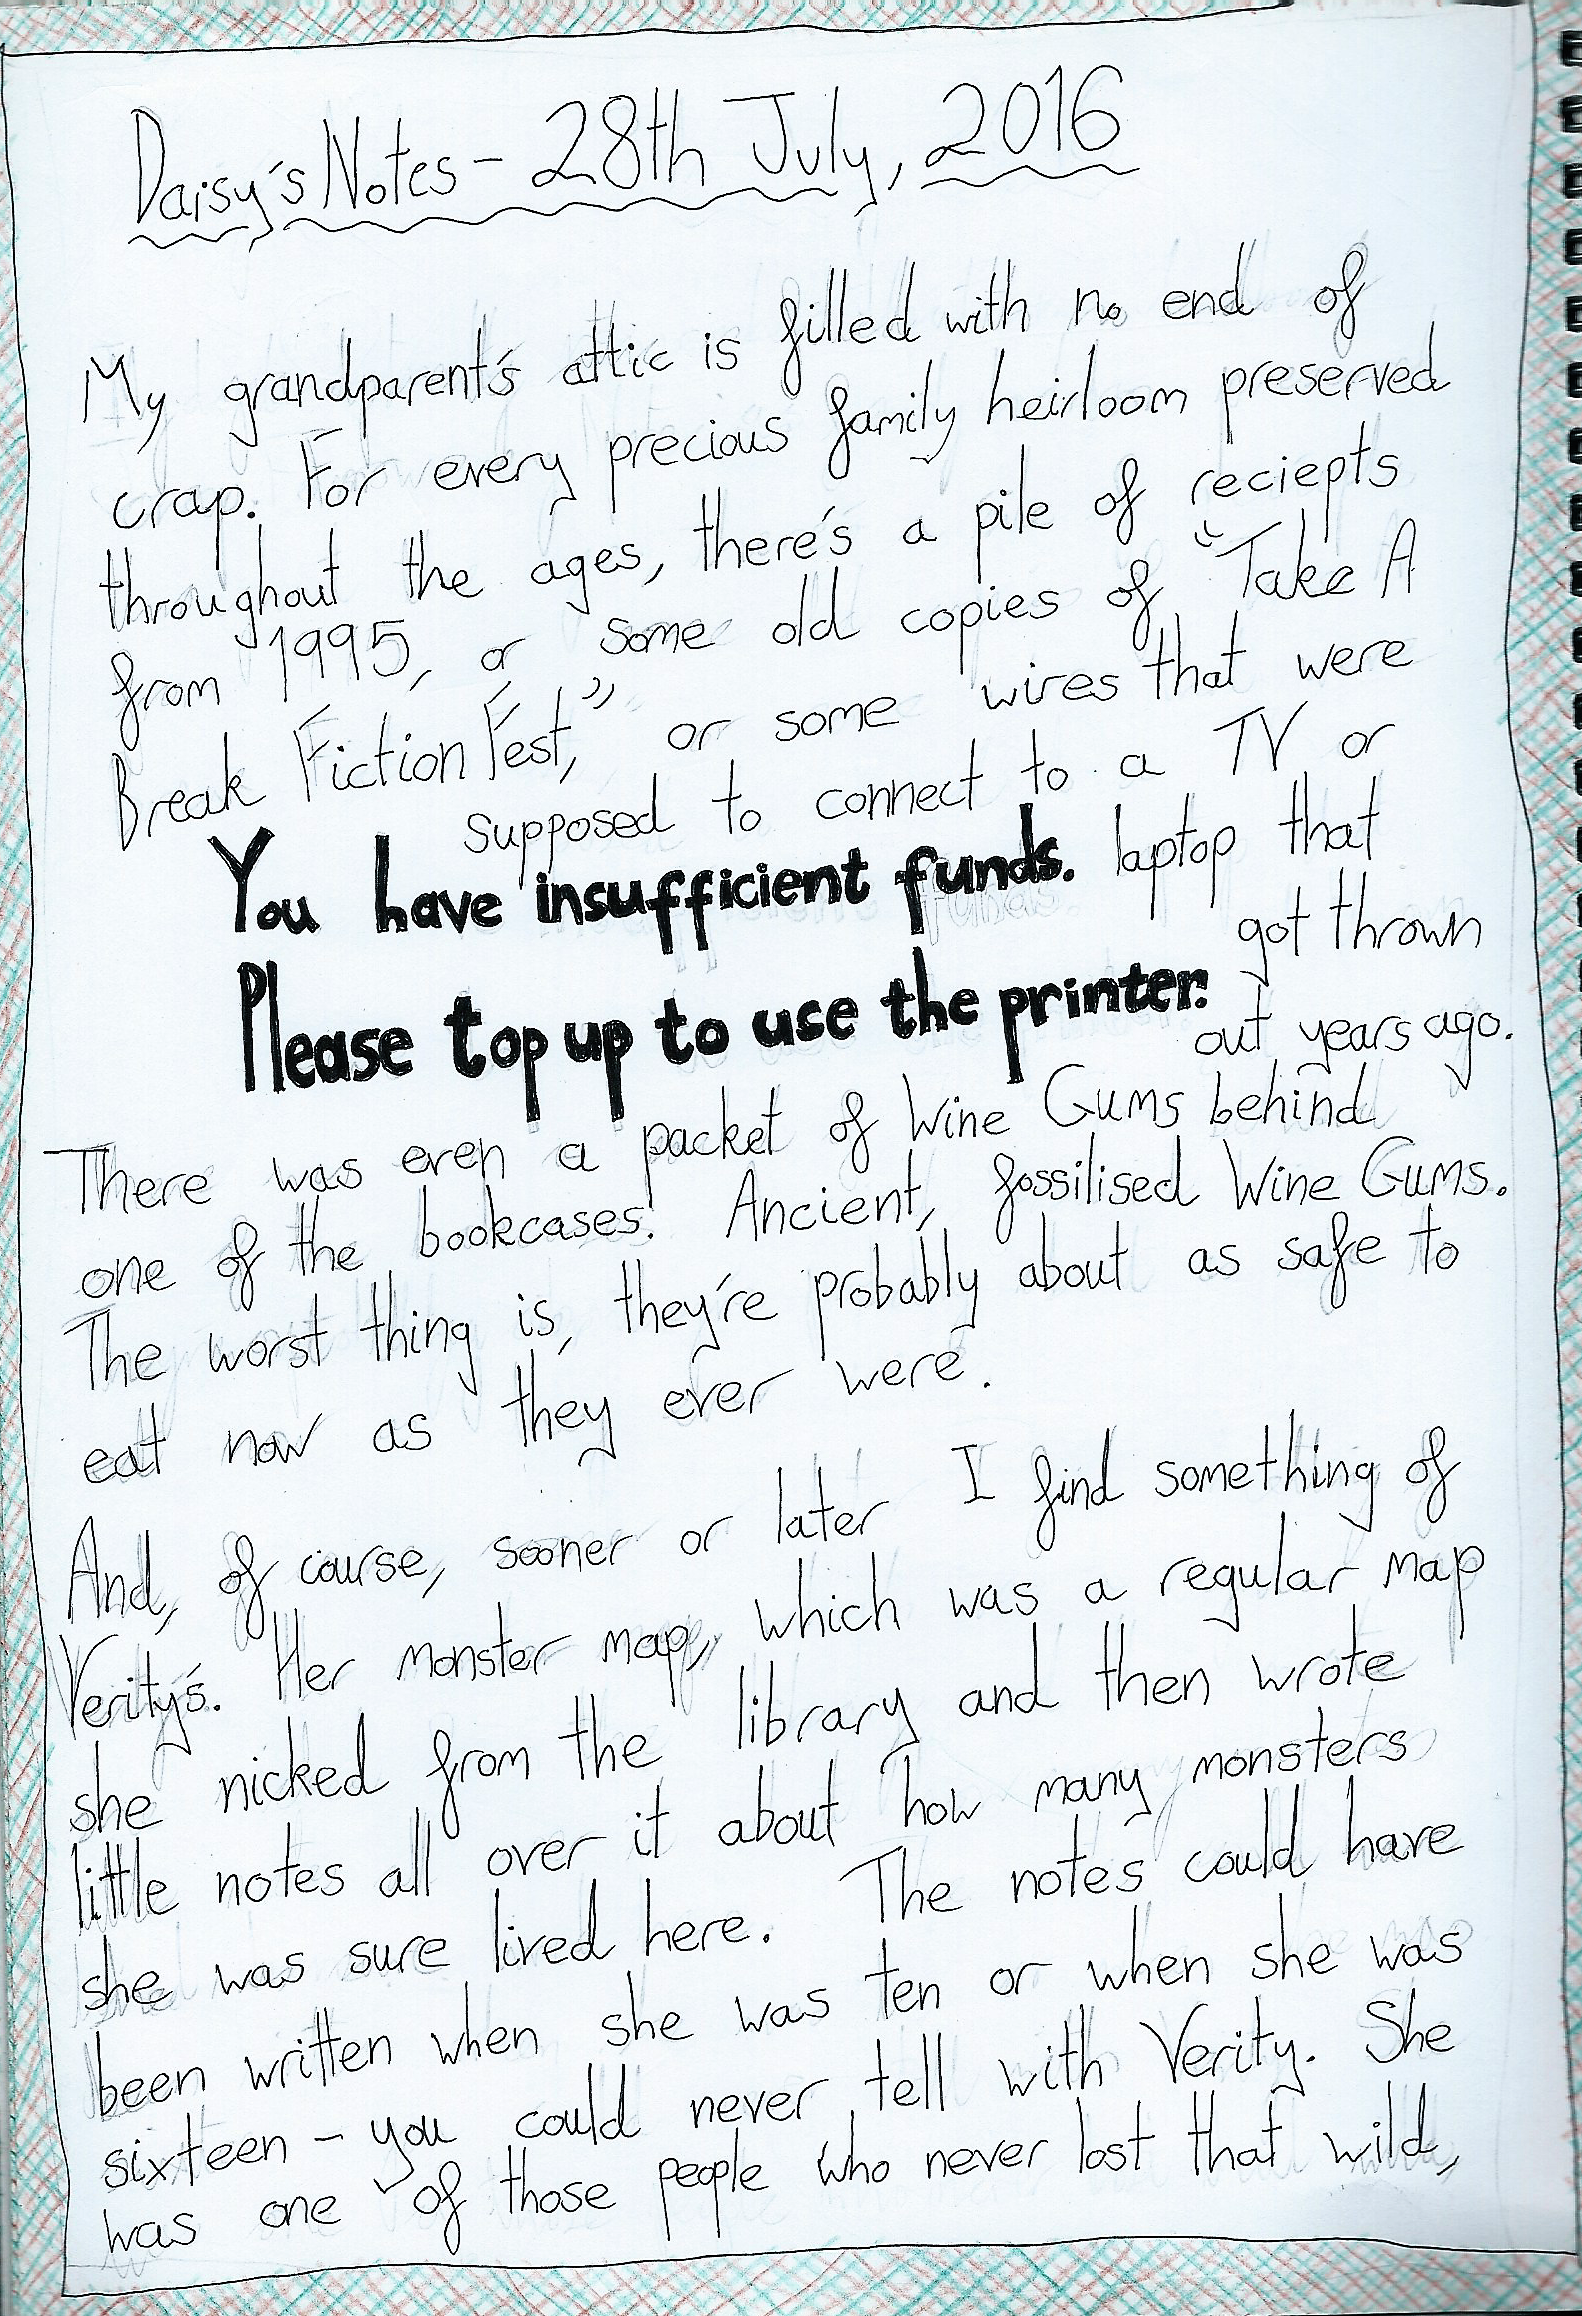 Daisy's Notes - 28th July, 2016
My grandparent's attic is filled with no end of
crap. For every precious family heirloom preserved
throughout the ages, there's a pile of reciepts
from 1995, or some old copies of "Take A
Break Fiction Fest," or some wires that were
supposed to connect to a TV or
You have insufficient funds. laptop that
got thrown
Please top up to use the printer.
out years ago.
There was even a packet of Wine Gums behind
one of the bookcases. Ancient, fossilised Wine Gums.
The worst thing is, they're probably about as safe to
eat now as they ever were.
And, of course, sooner or later I find something of
Verity's. Her monster map, which was a regular map
she nicked from the library and then wrote
little notes all over it about how many monsters
she was sure lived here. The notes could have
been written when she was ten or when she was
sixteen - you could never tell with Verity. She
was one of those people who never lost that wild,